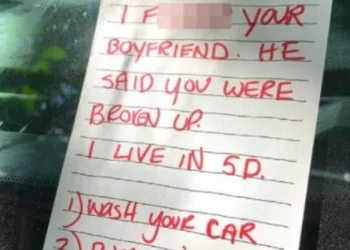 I F YOUR
BOYFRIEND. HE
SAID YOU WERE
BROKEN UP.
I LIVE IN 5D.
1) WASH YOUR CAR
2)